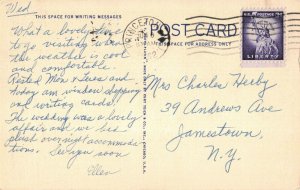 Wed
THIS SPACE FOR WRITING MESSAGES
What a lovely time
to go visiting when
the weather is cool
and comfortable.
Rested Mon & Tues and
today am window shopping
and writing cards.
The wedding was a lovely
affair and we had
plush overnight accommoda-
tions. See you soon
Ellen
POST CARD
THIS SPACE FOR ADDRESS ONLY
U.S. POSTAGE 3¢
LIBERTY
Mrs Charles Herby
39 Andrews Ave
Jamestown,
N.Y.